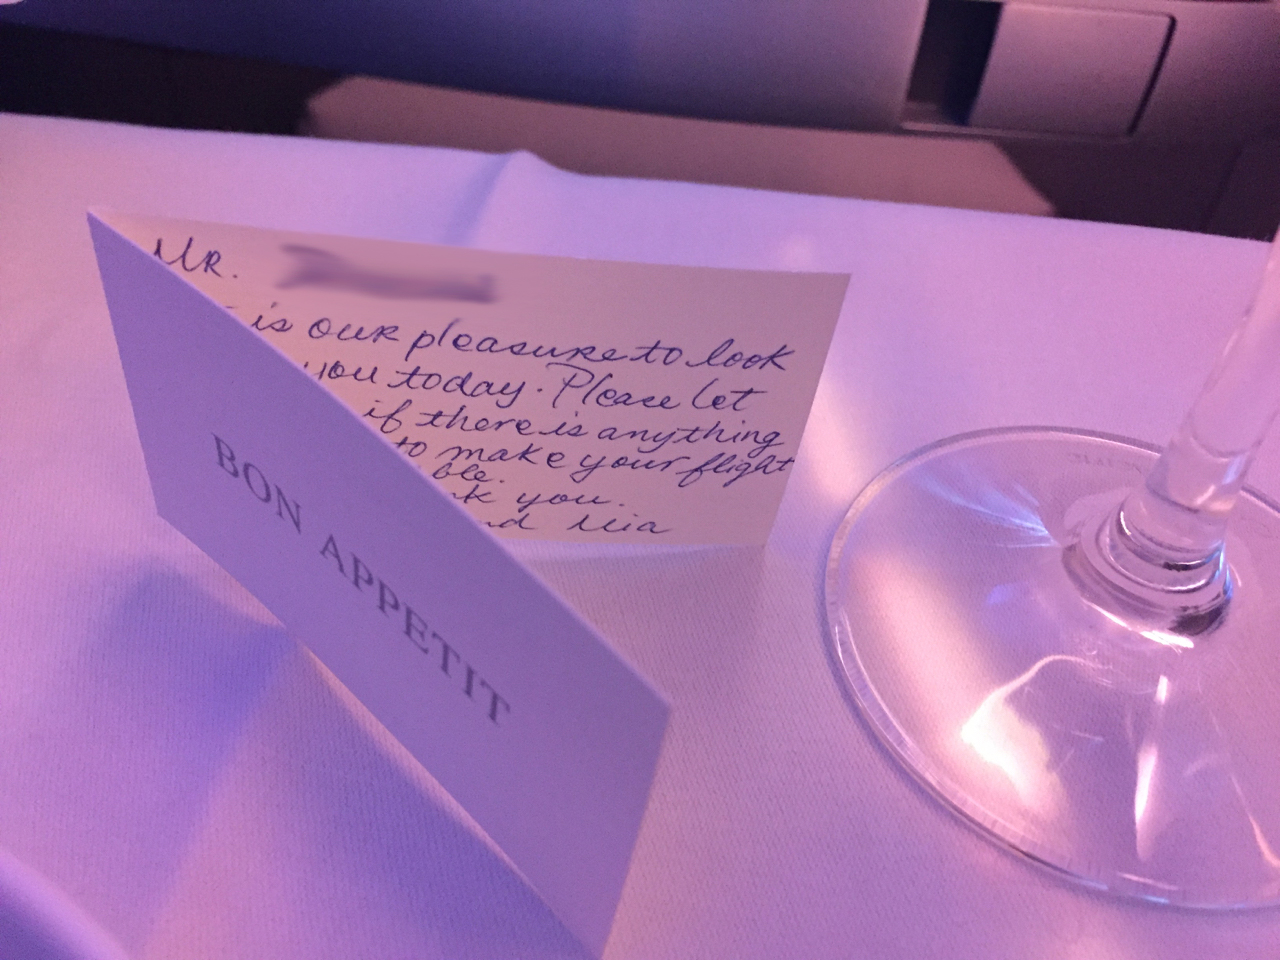 Mr.
is our pleasure to look
you today. Please let
if there is anything
to make your flight
ble.
k you.
nd Mia
BON APPETIT